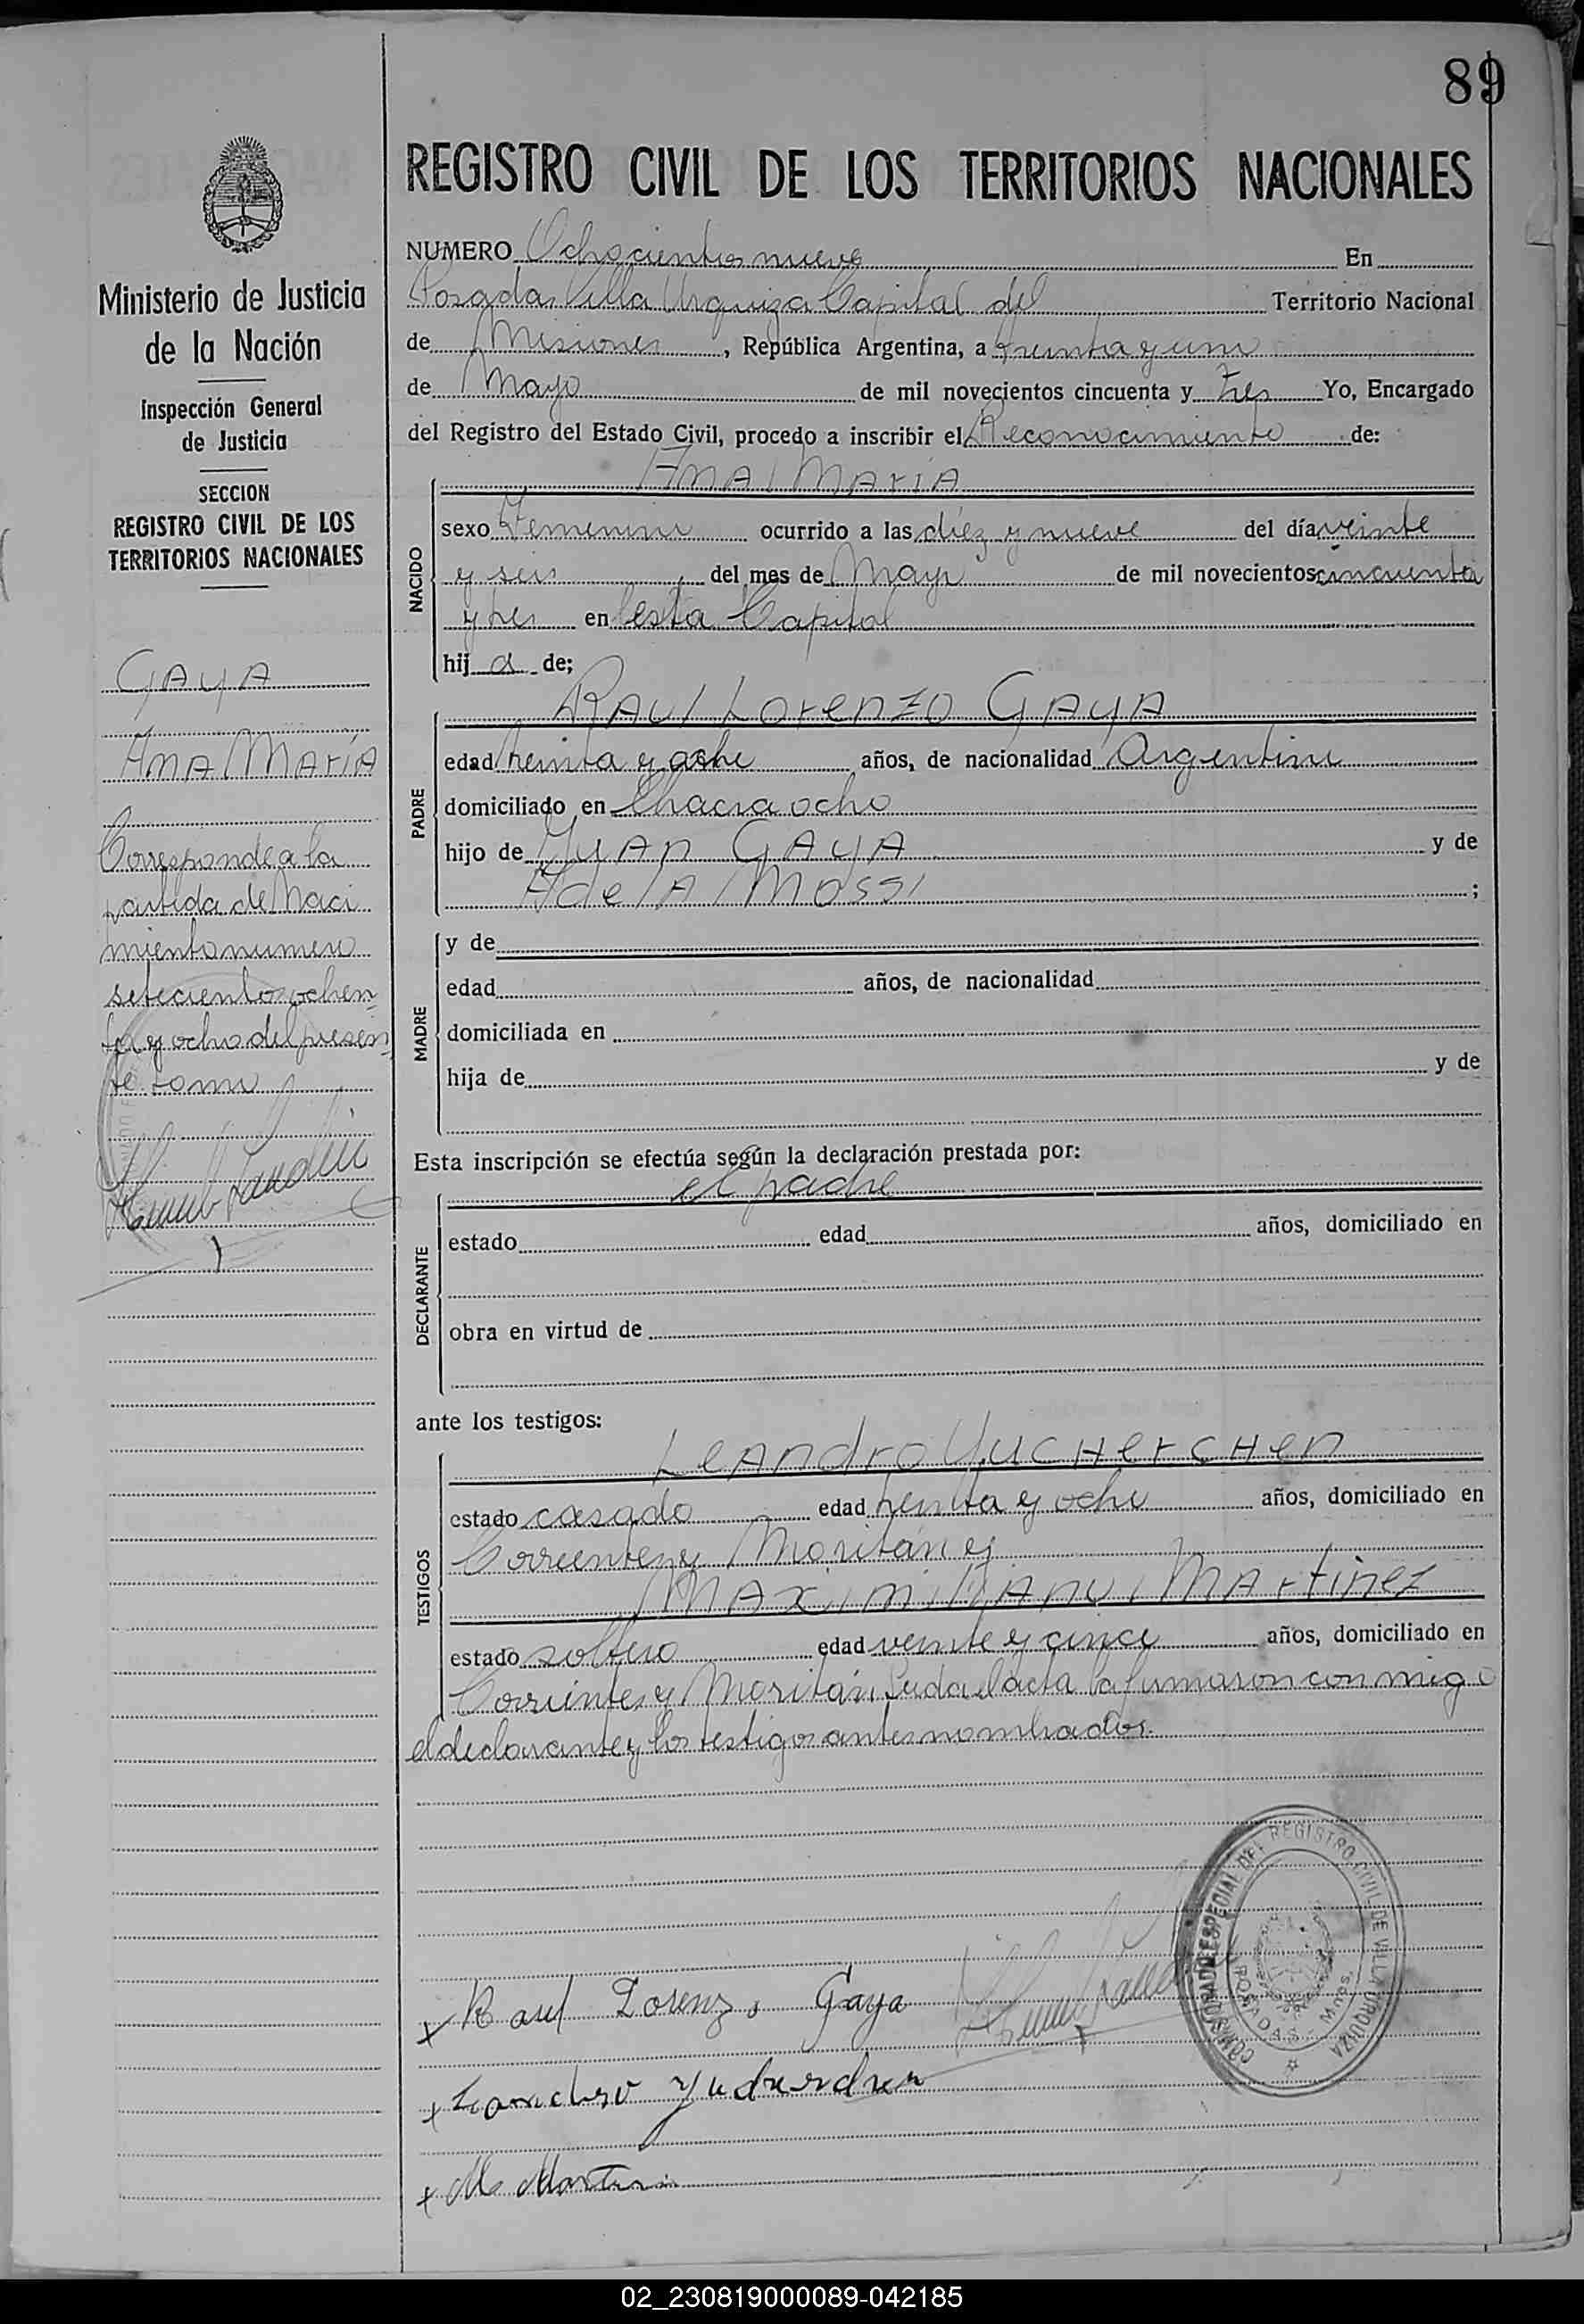 89
REGISTRO CIVIL DE LOS TERRITORIOS NACIONALES
Ministerio de Justicia
de la Nación
Inspección General
de Justicia
SECCION
REGISTRO CIVIL DE LOS
TERRITORIOS NACIONALES
GAYA
Ana María
Corresponde a la
partida de Naci
miento numero
setecientos ochen
ta y ocho del presen
te tomo
NUMERO Ochocientos nueve En
Posadas Villa Urquiza Capital del Territorio Nacional
de Misiones, República Argentina, a treinta y uno
de Mayo de mil novecientos cincuenta y tres Yo, Encargado
del Registro del Estado Civil, procedo a inscribir el Reconocimiento de:
Ana María
NACIDO
sexo Femenino ocurrido a las diez y nueve del día veinte
y seis del mes de Mayo de mil novecientos cincuenta
y tres en esta Capital
hija de;
Raul Lorenzo GAYA
PADRE
edad treinta y ocho años, de nacionalidad Argentino
domiciliado en Chacra ocho
hijo de Juan GAYA y de
Adela Mossi;
MADRE
y de
edad años, de nacionalidad
domiciliada en
hija de y de
Esta inscripción se efectúa según la declaración prestada por:
el padre
DECLARANTE
estado edad años, domiciliado en
obra en virtud de
ante los testigos:
Leandro Yucherchen
TESTIGOS
estado casado edad treinta y ocho años, domiciliado en
Corrientes y Moritán y
Maximiliano Martinez
estado soltero edad veinte y cinco años, domiciliado en
Corrientes y Moritán. Leida el acta la firmaron conmigo
el declarante y los testigos antes nombrados.
Raul Lorenzo Gaya
Leandro
M Martinez
COMISIONADO ESPECIAL DEL REGISTRO CIVIL DE VILLA URQUIZA
POSADAS - Mnes.
02_230819000089-042185